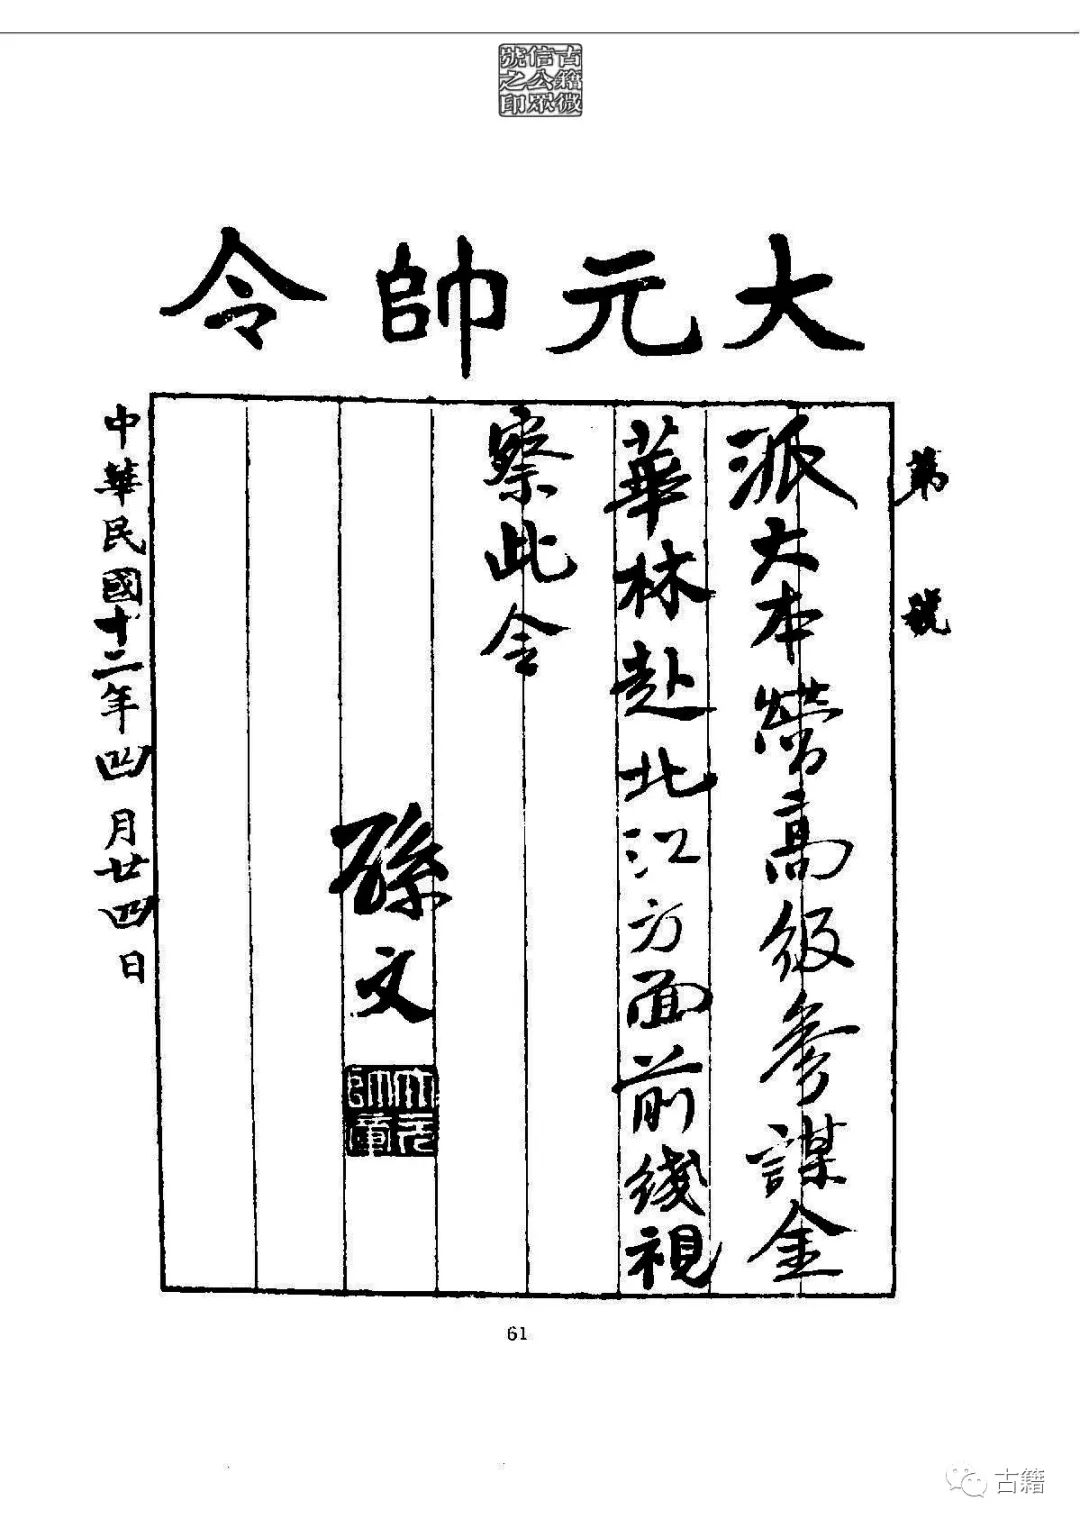 古籍微
信公眾
號之印
大元帥令
第　號
派大本營高級參謀金
華林赴北江方面前綫視
察此令
孫文
大元
帥章
中華民國十二年四月廿四日
61
古籍